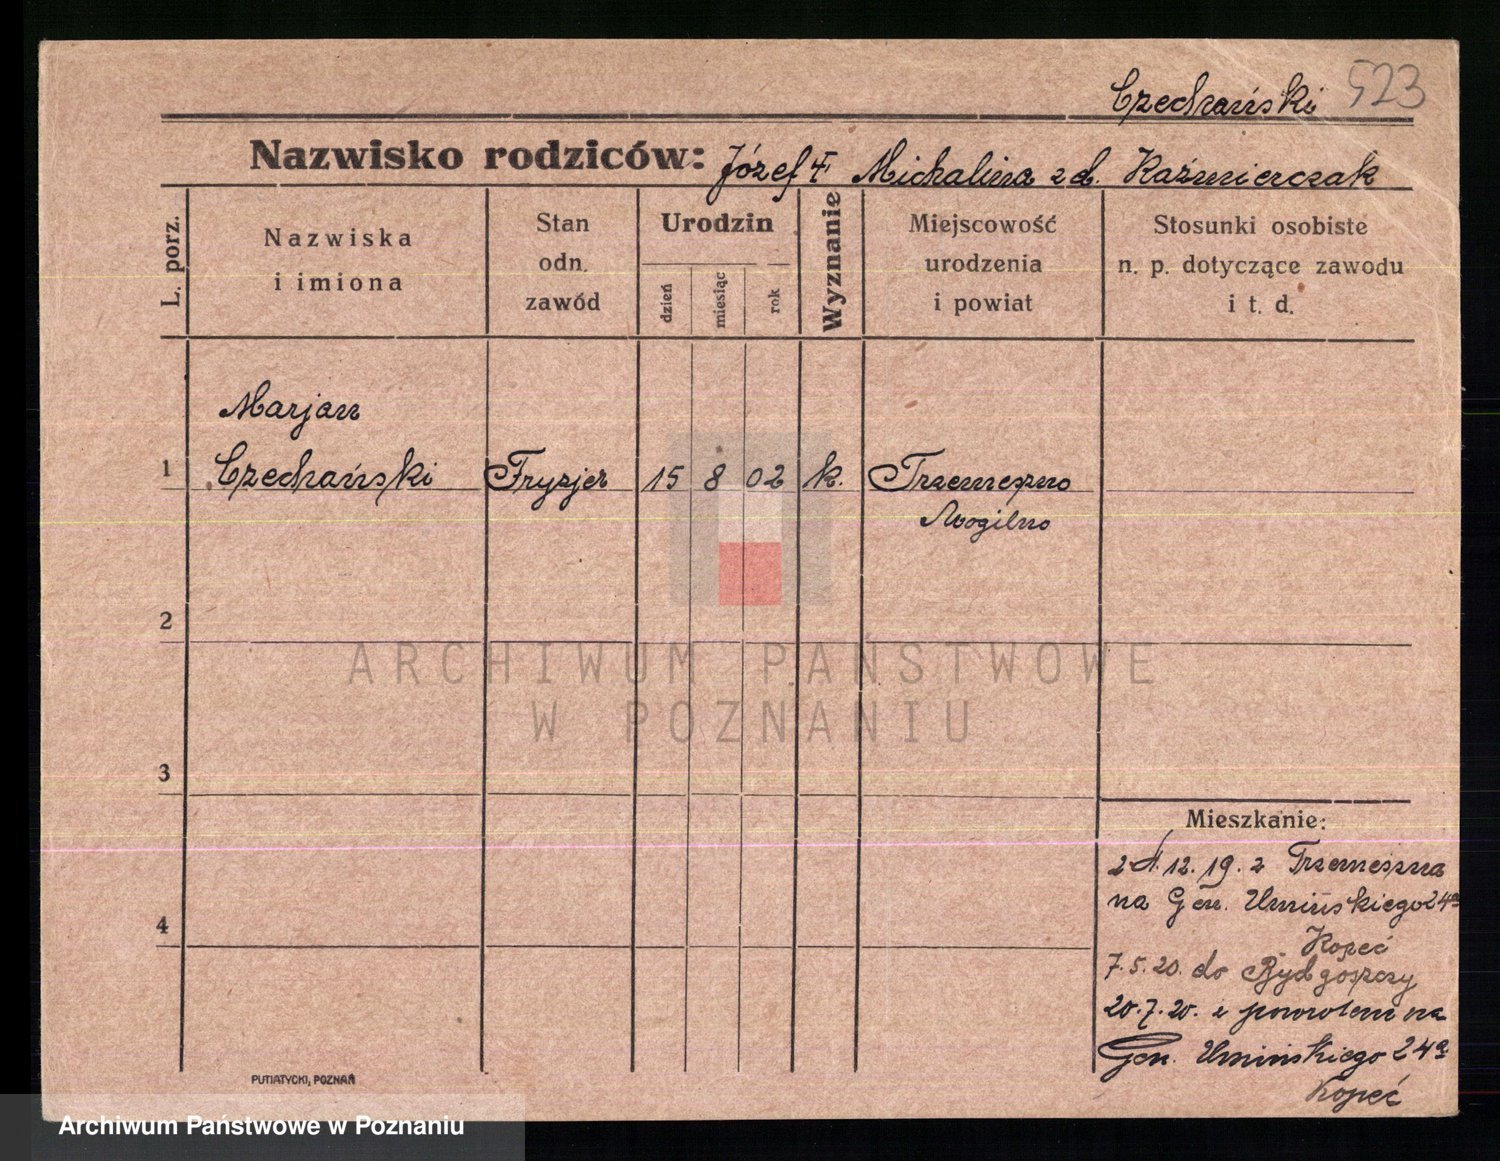 Czechański 523
Nazwisko rodziców: Józef Michalina z d. Kaźmierczak
L. porz.
Nazwiska
i imiona
Stan
odn.
zawód
Urodzin
dzień
miesiąc
rok
Wyznanie
Miejscowość
urodzenia
i powiat
Stosunki osobiste
n. p. dotyczące zawodu
i t. d.
Marjan
1 Czechański Fryzjer 15 8 02 k. Trzemeszno
Mogilno
2
ARCHIWUM PAŃSTWOWE
W POZNANIU
3
4
Mieszkanie:
12.19. z Trzemeszna
na Gen. Umińskiego 24a
Kopeć
7.5.20. do Bydgoszczy
20.7.20. z powrotem na
Gen. Umińskiego 24a
Kopeć
PUTIATYCKI, POZNAŃ
Archiwum Państwowe w Poznaniu